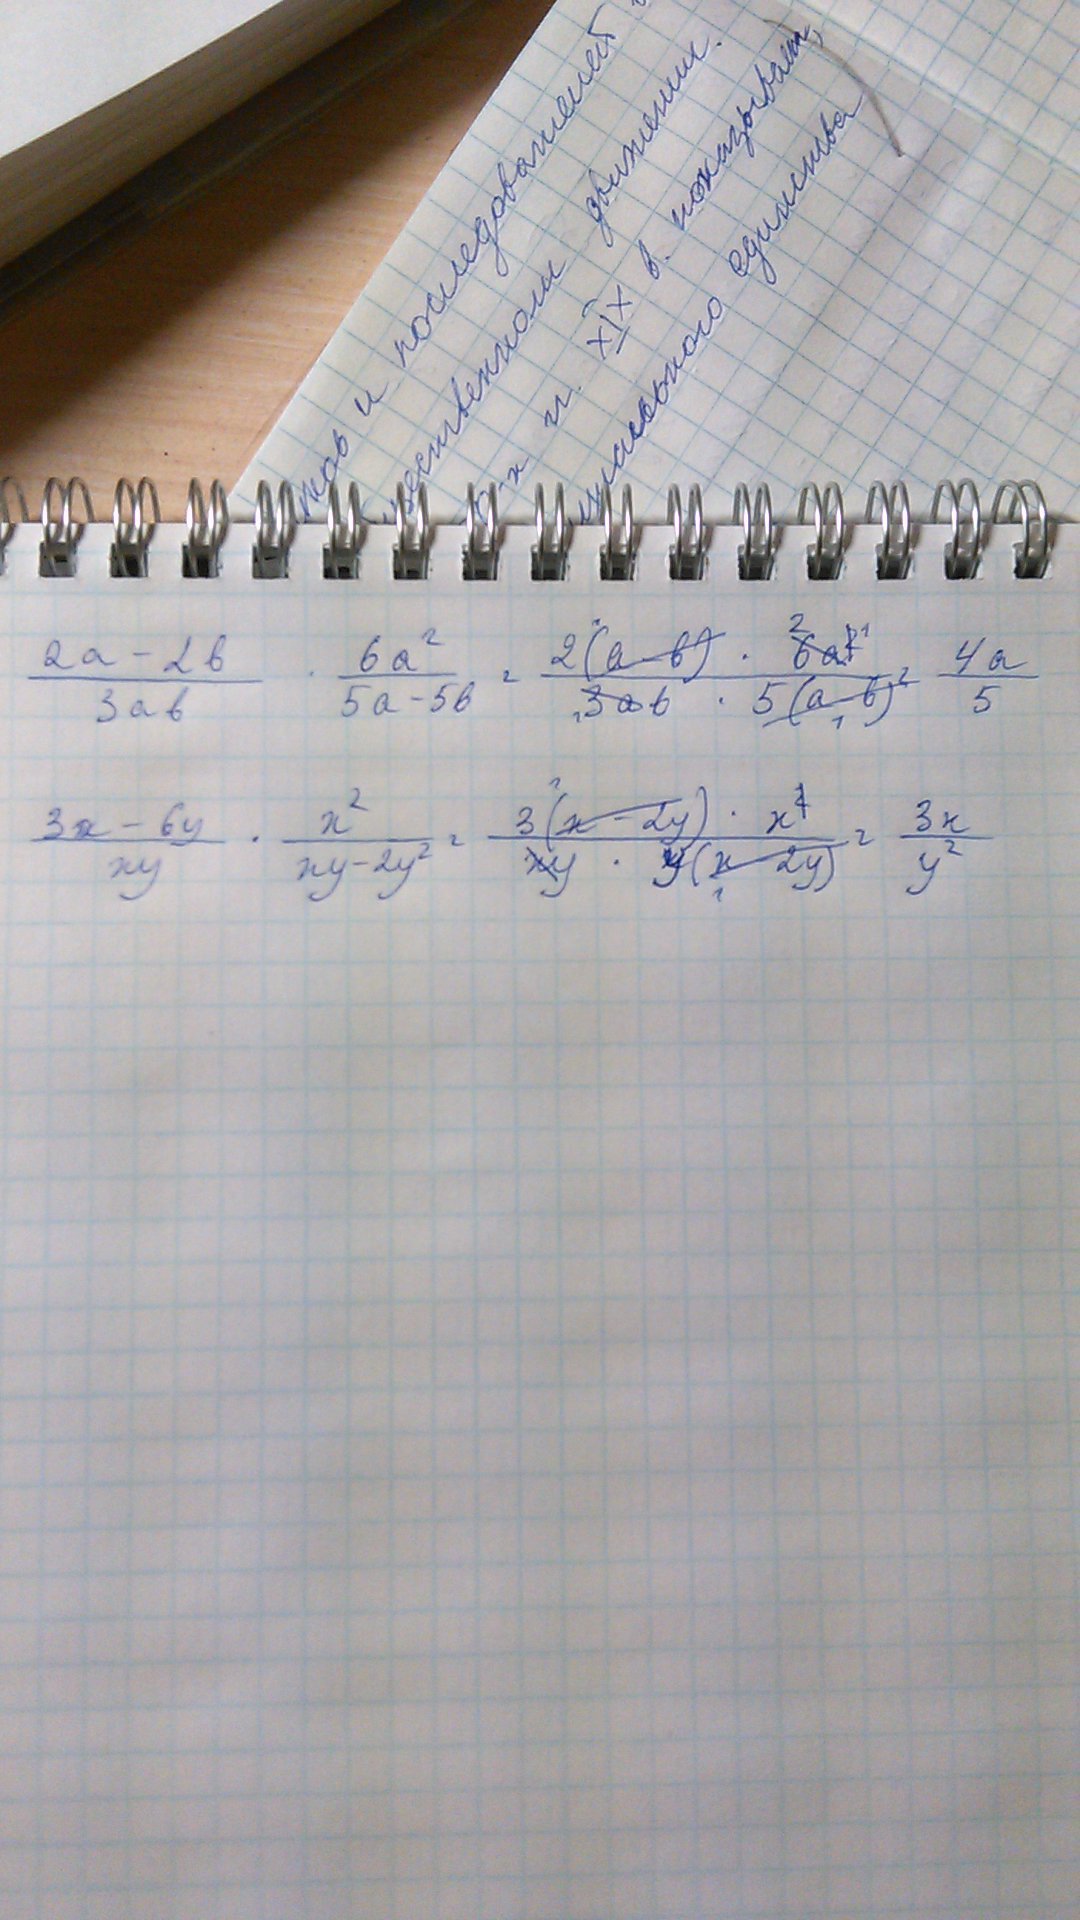 тов и последователей
щественном движении.
0-х гг. XIX в. показывает,
ционального единства
2a - 2b / 3ab · 6a² / 5a - 5b = 2(a - b) · 6a² / 3ab · 5(a - b) = 4a / 5
3x - 6y / xy · x² / xy - 2y² = 3(x - 2y) · x² / xy · y(x - 2y) = 3x / y²